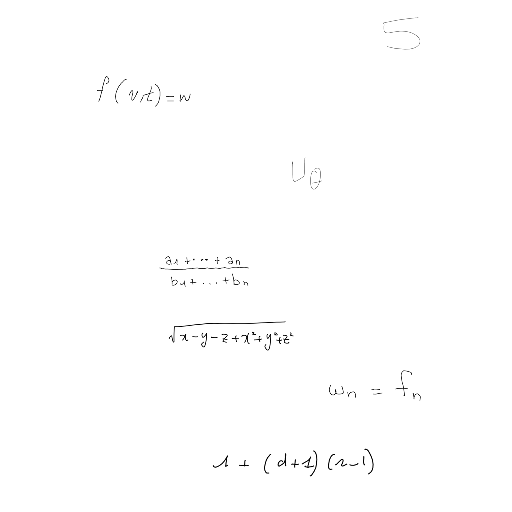 5
f(v,t)=w
u_θ
\frac{a_1+\cdots+a_n}{b_1+\ldots+b_n}
\sqrt{x-y-z+x^2+y^2+z^2}
ω_n = f_n
1+(d+1)(r-1)